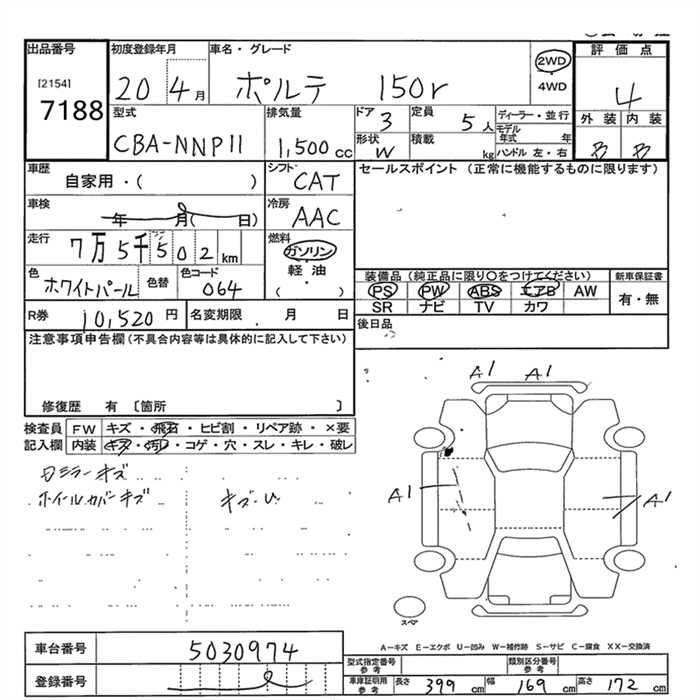 出品番号 初度登録年月 車名・グレード 2WD 評価点
[2154] 20 4月 ポルテ 150r 4WD 4
7188
型式 排気量 ドア 定員 ディーラー・並行 外装 内装
CBA-NNP11 1,500cc 3 5人 モデル年式 年 B B
形状 W 積載 kg ハンドル 左・右
車歴 シフト セールスポイント (正常に機能するものに限ります)
自家用・( ) CAT
車検 冷房
年 月( 日) AAC
走行 燃料
7万5千502km ガソリン
色 色替 色コード 軽油
ホワイトパール 064 ( ・ )
装備品 (純正品に限り○をつけてください) 新車保証書
PS PW ABS エアB AW 有・無
SR ナビ TV カワ
R券 10,520円 名変期限 . 月 日 後日品
注意事項申告欄(不具合内容等は具体的に記入して下さい)
修復歴 有 〔箇所 〕
検査員 FW キズ・飛石・ヒビ割・リペア跡・×要
記入欄 内装 キズ・汚れ・コゲ・穴・スレ・キレ・破レ
ミラーキズ
ホイールカバーキズ キズ・U
A1 A1
A1 A1
スペア
A-キズ E-エクボ U-凹み W-補修跡 S-サビ C-腐食 XX-交換済
車台番号 5030974
型式指定番号 参考 類別区分番号 参考
登録番号
車庫証明用 参考 長さ 399cm 幅 169cm 高さ 172cm